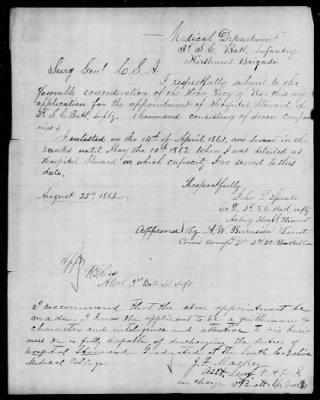 Medical Department
3d S.C. Batl. Infantry
Kershaws Brigade
Surg Genl C.S.A.
I respectfully submit to the
favorable consideration of the Hon. Secy of War this my
application for the appointment of Hospital Steward of
3d S.C. Batl Infty. (Command consisting of seven compa
nies)
I enlisted on the 14th of April 1861, and served in the
ranks until May the 10th 1862 when I was detailed as
Hospital Steward in which capacity I've served to this
date.
Respectfully
August 25th 1863
John
Co. 3d S.C. Batl infty
Acting Hospt Steward
Approved by A. W. Burnside Lieut
3d SC Battalion
I recommend that the above appointment be
made. I know the applicant to be a gentleman of
character and intelligence and attentive to his busi
ness & is fully capable of discharging the duties of
Hospital Steward. Graduated at the South Carolina
Medical College
Asst Surg P.A.C.S.
in charge 3d Batt